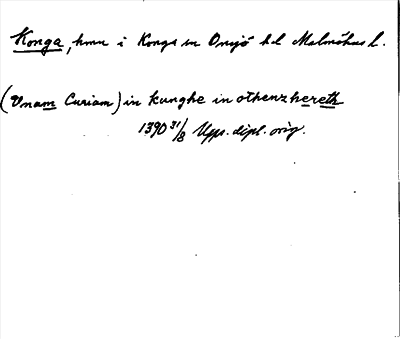 Konga, hmn i Konga sn Onsjö hd Malmöhus l.
(Vnam Curiam) in kunghe in othenzhereth
1390 31/8 Upps. dipl. orig.